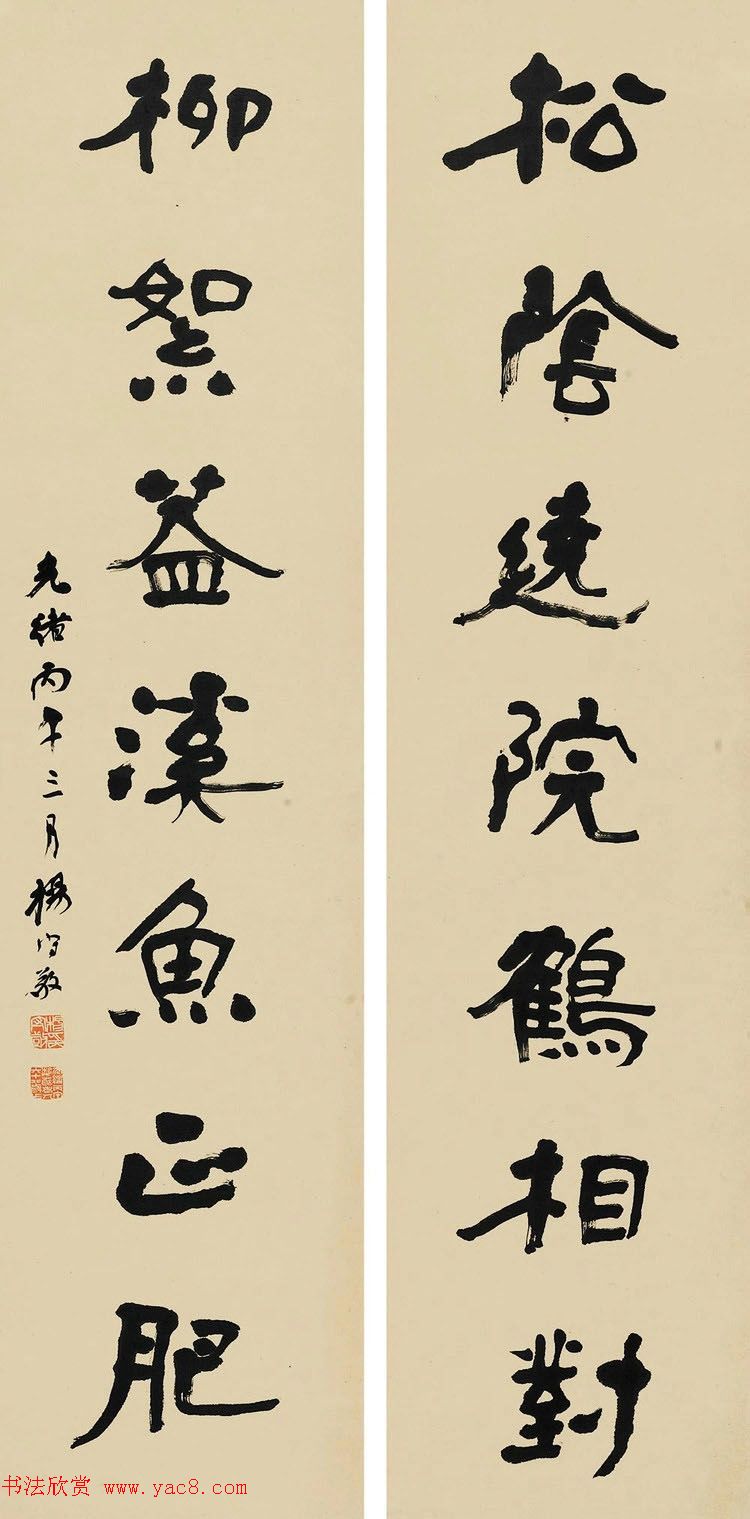 松陰遶院鶴相對
柳絮蓋溪魚正肥
光緒丙午三月楊守敬
书法欣赏 www.yac8.com